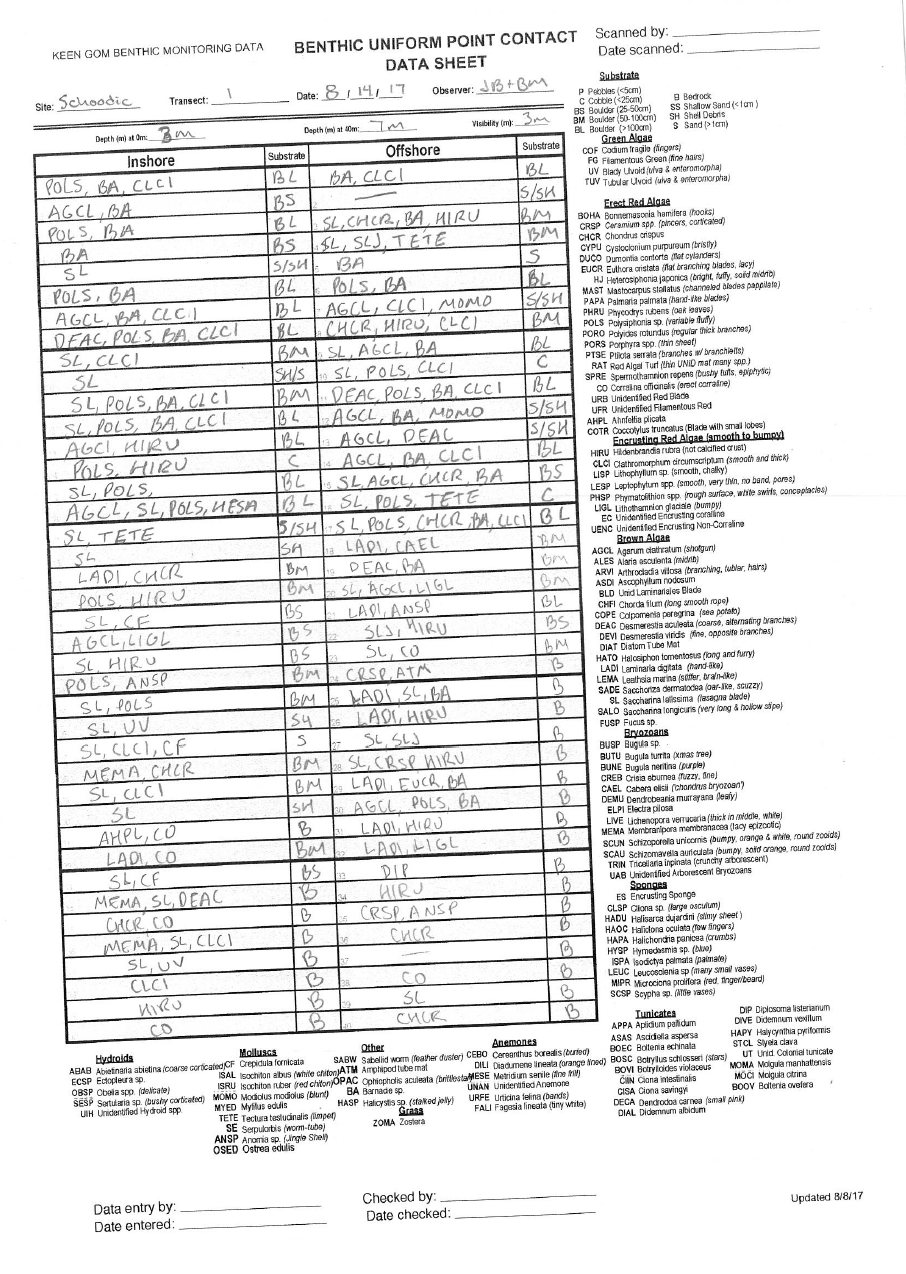 KEEN GOM BENTHIC MONITORING DATA
BENTHIC UNIFORM POINT CONTACT
DATA SHEET
Scanned by:
Date scanned:
Site: Schoodic Transect: 1 Date: 8/14/17 Observer: JB+BM
Depth (m) at 0m: 3m Depth (m) at 40m: 7m Visibility (m): 3m
Inshore Substrate Offshore Substrate
POLS, BA, CLCI BL BA, CLCI BL
AGCL, BA BS — S/SH
POLS, BA BL SL, CHCR, BA, HIRU BM
BA BS SL, SLJ, TETE BM
SL S/SH BA S
POLS, BA BL POLS, BA BL
AGCL, BA, CLCI BL AGCL, CLCI, MOMO S/SH
DEAC, POLS, BA, CLCI BL CHCR, HIRU, CLCI BM
SL, CLCI BM SL, AGCL, BA BL
SL SH/S 10 SL, POLS, CLCI C
SL, POLS, BA, CLCI BM DEAC, POLS, BA, CLCI BL
SL, POLS, BA, CLCI BL AGCL, BA, MOMO S/SH
AGCL, HIRU BL 13 AGCL, DEAC S/SH
POLS, HIRU C 14 AGCL, BA, CLCI BL
SL, POLS, BL 15 SL, AGCL, CHCR, BA BS
AGCL, SL, POLS, MESA BL 16 SL, POLS, TETE C
SL, TETE S/SH SL, POLS, CHCR, BA, CLCI BL
SL SH 18 LADI, CAEL BM
LADI, CHCR BM 19 DEAC, BA BM
POLS, HIRU BM 20 SL, AGCL, LIGL BM
SL, CF BS 21 LADI, ANSP BL
AGCL, LIGL BS SLJ, HIRU BS
SL, HIRU BS 23 SL, CO BM
POLS, ANSP BM 24 CRSP, ATM B
SL, POLS BM 25 LADI, SL, BA B
SL, UV SH 26 LADI, HIRU B
SL, CLCI, CF S 27 SL, SLJ B
MEMA, CHCR BM 28 SL, CRSP HIRU B
SL, CLCI BM 29 LADI, EUCR, BA B
SL SH 30 AGCL, POLS, BA B
AHPL, CO B 31 LADI, HIRU B
LADI, CO BM 32 LADI, LIGL B
SL, CF BS 33 DIP B
MEMA, SL, DEAC B 34 HIRU B
CHCR, CO B 35 CRSP, ANSP B
MEMA, SL, CLCI B 36 CHCR B
SL, UV B 37 — B
CLCI B 38 CO B
HIRU B 39 SL B
CO B 40 CHCR B
Substrate
P Pebbles (<5cm)
C Cobble (<25cm) B Bedrock
BS Boulder (25-50cm) SS Shallow Sand (<1cm)
BM Boulder (50-100cm) SH Shell Debris
BL Boulder (>100cm) S Sand (>1cm)
Green Algae
COF Codium fragile (fingers)
FG Filamentous Green (fine hairs)
UV Blady Ulvoid (ulva & enteromorpha)
TUV Tubular Ulvoid (ulva & enteromorpha)
Erect Red Algae
BOHA Bonnemasonia hamifera (hooks)
CRSP Ceramium spp. (pincers, corticated)
CHCR Chondrus crispus
CYPU Cystoclonium purpureum (bristly)
DUCO Dumontia contorta (flat cylanders)
EUCR Euthora cristata (flat branching blades, lacy)
HJ Heterosiphonia japonica (bright, fluffy, solid midrib)
MAST Mastocarpus stallatus (channeled blades pappilate)
PAPA Palmaria palmata (hand-like blades)
PHRU Phycodrys rubens (oak leaves)
POLS Polysiphonia sp. (variable fluffy)
PORO Polyides rotundus (regular thick branches)
PORS Porphyra spp. (thin sheet)
PTSE Ptilota serrata (branches w/ branchletts)
RAT Red Algal Turf (thin UNID mat many spp.)
SPRE Spermothamnion repens (bushy tufts, epiphytic)
CO Corralina officinalis (erect corraline)
URB Unidentified Red Blade
UFR Unidentified Filamentous Red
AHPL Ahnfeltia plicata
COTR Coccotylus truncatus (Blade with small lobes)
Encrusting Red Algae (smooth to bumpy)
HIRU Hildenbrandia rubra (not calcified crust)
CLCI Clathromorphum circumscriptum (smooth and thick)
LISP Lithophyllum sp. (smooth, chalky)
LESP Leptophytum spp. (smooth, very thin, no band, pores)
PHSP Phymatolithion spp. (rough surface, white swirls, conceptacles)
LIGL Lithothamnion glaciale (bumpy)
EC Unidentified Encrusting coralline
UENC Unidentified Encrusting Non-Corraline
Brown Algae
AGCL Agarum clathratum (shotgun)
ALES Alaria esculenta (midrib)
ARVI Arthrocladia villosa (branching, tubler, hairs)
ASDI Ascophyllum nodosum
BLD Unid Laminariales Blade
CHFI Chorda filum (long smooth rope)
COPE Colpomenia peregrina (sea potato)
DEAC Desmerestia aculeata (coarse, alternating branches)
DEVI Desmerestia viridis (fine, opposite branches)
DIAT Diatom Tube Mat
HATO Halosiphon tomentosus (long and furry)
LADI Laminaria digitata (hand-like)
LEMA Leathsia marina (stiffer, brain-like)
SADE Sacchoriza dermatodea (oar-like, scuzzy)
SL Saccharina latissima (lasagna blade)
SALO Saccharina longicuris (very long & hollow stipe)
FUSP Fucus sp.
Bryozoans
BUSP Bugula sp.
BUTU Bugula turrita (xmas tree)
BUNE Bugula neritina (purple)
CREB Crisia eburnea (fuzzy, fine)
CAEL Cabera ellisii ('chondrus bryozoan')
DEMU Dendrobeania murrayana (leafy)
ELPI Electra pilosa
LIVE Lichenopora verrucaria (thick in middle, white)
MEMA Membranipora membranacea (lacy epizootic)
SCUN Schizoporella unicornis (bumpy, orange & white, round zooids)
SCAU Schizomavella auriculata (bumpy, solid orange, round zooids)
TRIN Tricellaria inpinata (crunchy arborescent)
UAB Unidentified Arborescent Bryozoans
Sponges
ES Encrusting Sponge
CLSP Cliona sp. (large osculum)
HADU Halisarca dujardini (slimy sheet)
HAOC Haliclona oculata (few fingers)
HAPA Halichondria panicea (crumbs)
HYSP Hymedesmia sp. (blue)
ISPA Isodictya palmata (palmate)
LEUC Leucosolenia sp (many small vases)
MIPR Microciona prolifera (red, finger/beard)
SCSP Scypha sp. (little vases)
Tunicates
APPA Aplidium pallidum
ASAS Ascidiella aspersa
BOEC Boltenia echinata
BOSC Botryllus schlosseri (stars)
BOVI Botrylloides violaceus
CIIN Ciona intestinalis
CISA Ciona savingyi
DECA Dendrodoa carnea (small pink)
DIAL Didemnum albidum
DIP Diplosoma listerianum
DIVE Didemnum vexillum
HAPY Halycynthia pyriformis
STCL Styela clava
UT Unid. Colonial tunicate
MOMA Molgula manhattensis
MOCI Molgula citrina
BOOV Boltenia ovefera
Hydroids
ABAB Abietinaria abietina (coarse corticated)
ECSP Ectopleura sp.
OBSP Obelia spp. (delicate)
SESP Sertularia sp. (bushy corticated)
UIH Unidentified Hydroid spp.
Molluscs
CF Crepidula fornicata
ISAL Isochiton albus (white chiton)
ISRU Isochiton ruber (red chiton)
MOMO Modiolus modiolus (blunt)
MYED Mytilus edulis
TETE Tectura testudinalis (limpet)
SE Serpulorbis (worm-tube)
ANSP Anomia sp. (Jingle Shell)
OSED Ostrea edulis
Other
SABW Sabellid worm (feather duster)
ATM Amphipod tube mat
OPAC Ophiopholis aculeata (brittlestar)
BA Barnacle sp.
HASP Halicystis sp. (stalked jelly)
Grass
ZOMA Zostera
Anemones
CEBO Cereanthus borealis (buried)
DILI Diadumene lineata (orange lined)
MESE Metridium senile (fine frill)
UNAN Unidentified Anemone
URFE Urticina felina (bands)
FALI Fagesia lineata (tiny white)
Data entry by:
Date entered:
Checked by:
Date checked:
Updated 8/8/17